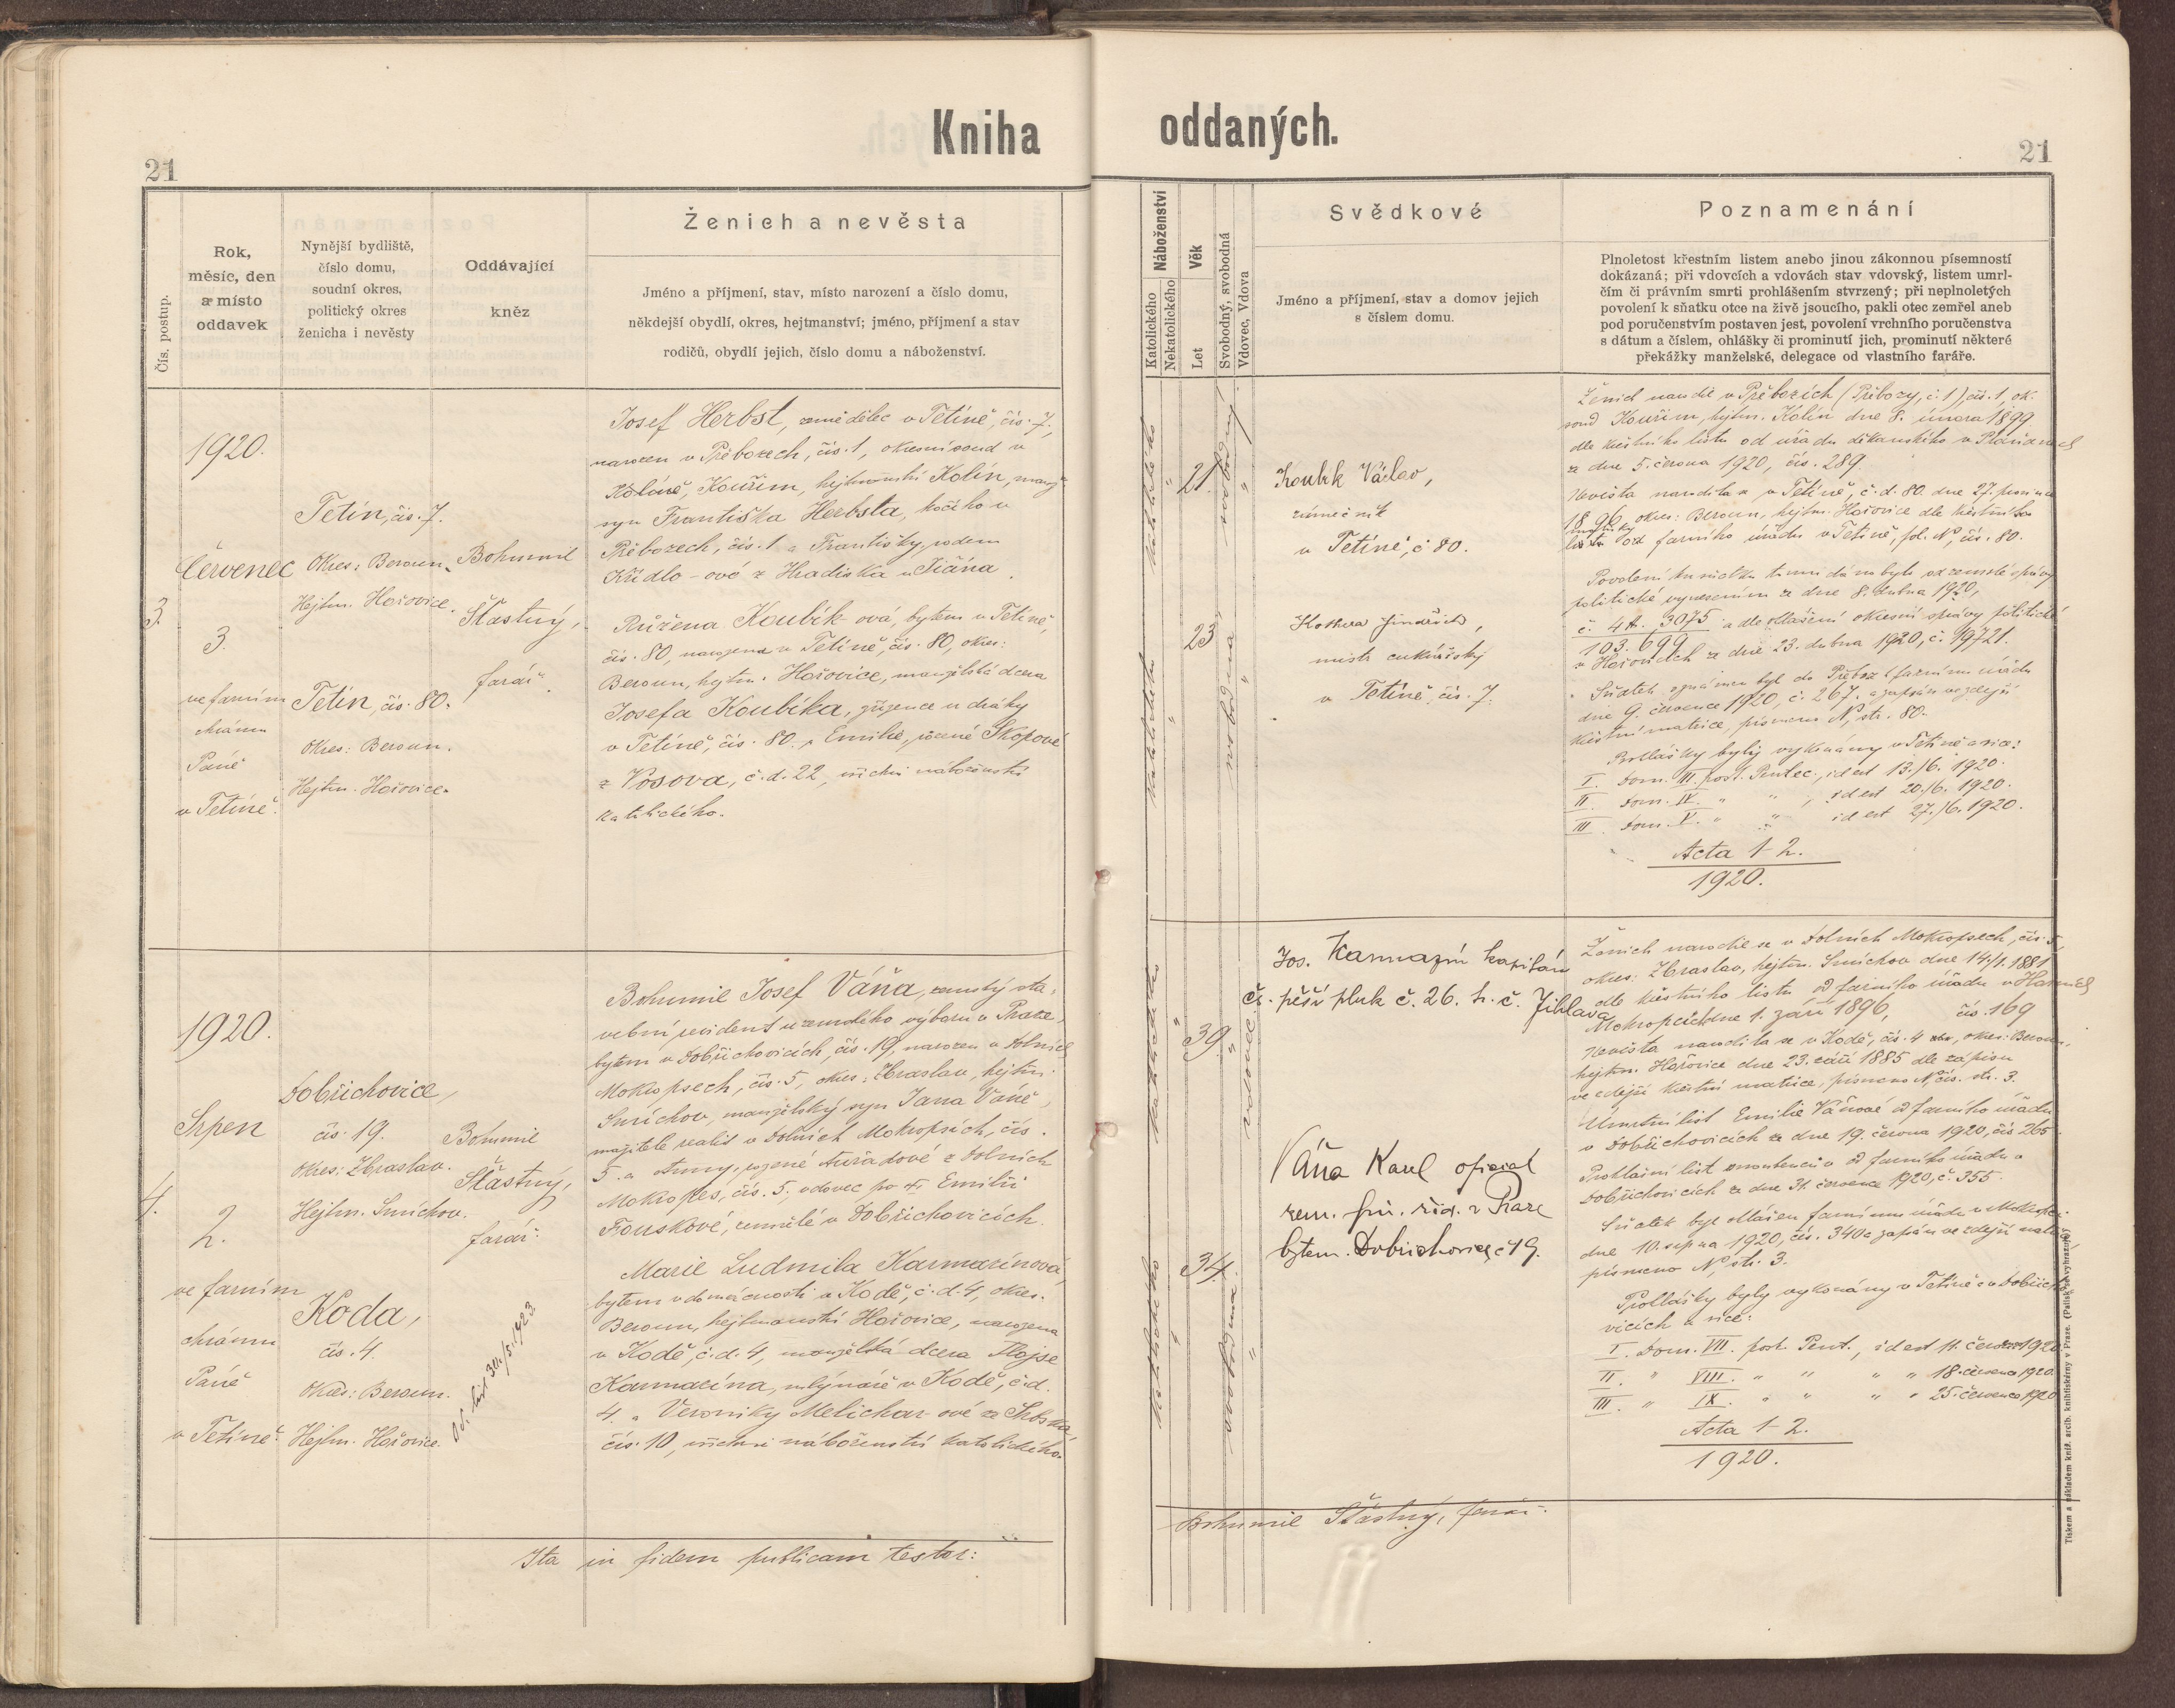 Kniha oddaných.
21
21
Čís. postup.
Rok,
měsíc, den
a místo
oddavek
Nynější bydliště,
číslo domu,
soudní okres,
politický okres
ženicha i nevěsty
Oddávající
kněz
Ženich a nevěsta
Jméno a příjmení, stav, místo narození a číslo domu,
někdejší obydlí, okres, hejtmanství; jméno, příjmení a stav
rodičů, obydlí jejich, číslo domu a náboženství.
Náboženství
Katolického
Nekatolického
Věk
Let
Svobodný, svobodná
Vdovec, Vdova
Svědkové
Jméno a příjmení, stav a domov jejich
s číslem domu.
Poznamenání
Plnoletost křestním listem anebo jinou zákonnou písemností
dokázaná; při vdovcích a vdovách stav vdovský, listem umrl-
čím či právním smrti prohlášením stvrzený; při neplnoletých
povolení k sňatku otce na živě jsoucího, pakli otec zemřel aneb
pod poručenstvím postaven jest, povolení vrchního poručenstva
s dátum a číslem, ohlášky či prominutí jich, prominutí některé
překážky manželské, delegace od vlastního faráře.
3.
1920.
Červenec
3.
ve farním
chrámu
Páně
v Tetíně.
Tetín, čís. 7.
Okres: Beroun.
Hejtm. Hořovice.
Tetín, čís. 80.
Okres: Beroun.
Hejtm. Hořovice.
Bohumil
Šťastný,
farář.
Josef Herbst, zemědělec v Tetíně, čís. 7,
narozen v Přebozech, čís. 1, okresní soud v
Kolíně, Kouřim, hejtmanství Kolín, manž.
syn Františka Herbsta, kočího v
Přebozech, čís. 1 a Františky, rodem
Křídlo-ové z Hradiska u Jičína.
Růžena Koubík-ová, bytem v Tetíně,
čís. 80, narozena v Tetíně, čís. 80, okres:
Beroun, hejtm. Hořovice, manželská dcera
Josefa Koubíka, zřízence u dráhy
v Tetíně, čís. 80. a Emilie, rozené Skopové
z Vosova, č.d. 22, všichni náboženství
katolického.
katolického
21.
svobodný
katolického
23
svobodná
Koubk Václav,
zámečník
v Tetíně, č 80.
Jindřich,
mistr cukrářský
v Tetíně, čís. 7.
Ženich narodil v Přebozích (Přebozy, č. 1), čís. 1, ok.
soud Kouřim, hejtm. Kolín dne 8. února 1899
dle křestního listu od úřadu děkanského v Plaňanech
ze dne 5. června 1920, čís. 289.
Nevěsta narodila se v Tetíně, č. d. 80. dne 27. prosince
1896, okres: Beroun, hejtm. Hořovice dle křestního
od farního úřadu v Tetíně, fol. N, čís. 80.
Povolení ku sňatku dáno bylo od zemské správy
politické vynesením ze dne 8. dubna 1920,
č. 4A. 3075 a dle sdělení okresní správy politické
103.699
v Hořovicích ze dne 23. dubna 1920, č. 19721.
Sňatek oznámen byl do farnímu úřadu
dne 9. července 1920, č. 267. a zapsán ve zdejší
křestní matrice, písmeno N, str. 80.
Prohlášky byly vykonány v Tetíně a sice:
I. dom. III. post. Pentec., id est 13./6. 1920.
II. dom. IV. " " , id est 20./6. 1920.
III. dom. V. " " id est 27./6. 1920.
Acta 1-2.
1920.
4.
1920.
Srpen
2.
ve farním
chrámu
Páně
v Tetíně.
Dobřichovice,
čís. 19.
Okres: Zbraslav.
Hejtm. Smíchov.
Koda,
čís. 4.
Okres: Beroun.
Hejtm. Hořovice.
Bohumil
Šťastný,
farář.
Od. list 30./5. 1923.
Bohumil Josef Váňa, zemský sta-
vební revident u zemského výboru v Praze,
bytem v Dobřichovicích, čís. 19, narozen v Dolních
Mokropsech, čís. 5, okres: Zbraslav, hejtm.
Smíchov, manželský syn Jana Váně,
majitele realit v Dolních Mokropsích, čís.
5. a Anny, rozené z Dolních
Mokropes, čís. 5, vdovec po † Emilii
Fouskové, zemřelé v Dobřichovicích.
Marie Ludmila Karmazínová,
bytem v domácnosti v Kodě, č.d. 4, okres.
Beroun, hejtmanství Hořovice, narozena
v Kodě, č.d. 4, manželská dcera Alojse
Karmazína, mlynáře v Kodě, č.d.
4. a Veroniky Melichar-ové ze Srbska,
čís. 10, všichni náboženství katolického.
katolického
39
vdovec
katolického
34.
svobodná
Jos. Karmazín kapitán
čs. pěší pluk č. 26. t. č. Jihlava
Váňa Karel oficial
zem. fin. řid. v Praze
bytem. Dobřichovice, č 19.
Ženich narodil se v Dolních Mokropsech, čís. 5,
okres: Zbraslav, hejtm. Smíchov dne 14./1. 1881
dle křestního listu od farního úřadu v Horních
Mokropcích dne 1. září 1896, čís. 169
Nevěsta narodila se v Kodě, čís. 4 okres: Beroun,
hejtm. Hořovice dne 23. září 1885 dle zápisu
ve zdejší křestní matrice, písmeno N, čís. str. 3.
Úmrtní list Emilie Váňové od farního úřadu
v Dobřichovicích ze dne 19. června 1920, čís 265
Prohlašní list od farního úřadu v
Dobřichovicích ze dne 31. července 1920, č. 355.
Sňatek byl ohlášen farnímu úřadu v
dne 10. srpna 1920, čís. 340 a zapsán ve zdejší
písmeno N, str. 3.
Prohlášky byly vykonány v Tetíně a v Dobřicho-
vicích a sice:
I. Dom. VII. post. Pent., id est 11. července 1920
II. " VIII. " " " " 18. července 1920.
III. " IX. " " " " 25. července 1920
Acta 1-2.
1920.
Ita in fidem publicam testor: Bohumil Šťastný, farář.
Tiskem a nákladem kníž. arcib. knihtiskárny v Praze. (Patisk se vyhrazuje.)